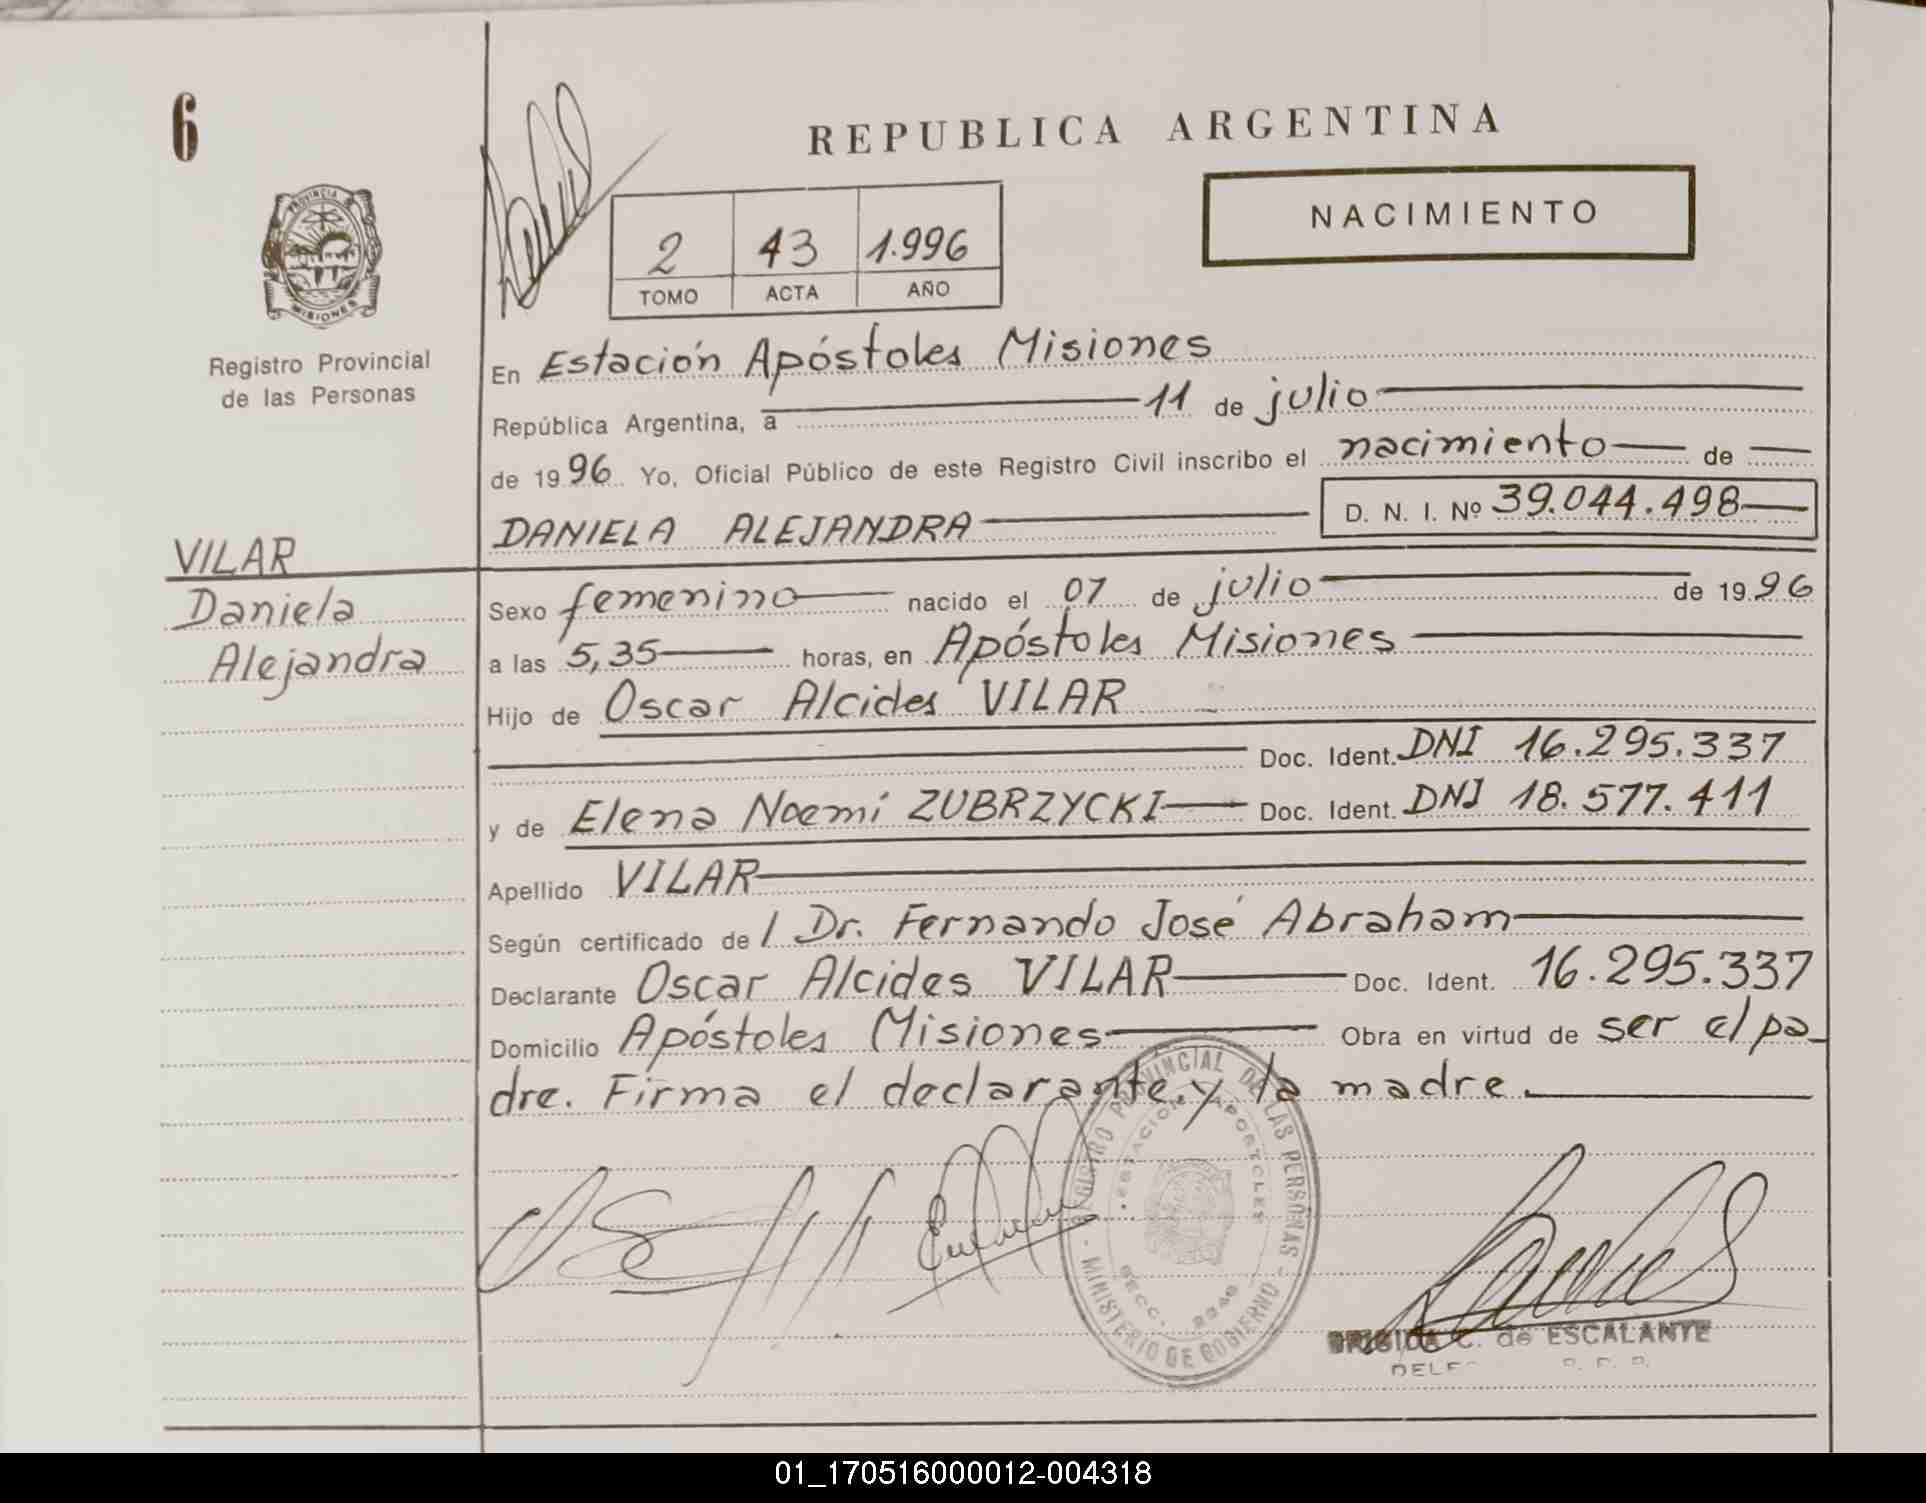 6
REPUBLICA ARGENTINA
NACIMIENTO
2 43 1.996
TOMO ACTA AÑO
PROVINCIA
MISIONES
Registro Provincial
de las Personas
En Estación Apóstoles Misiones
República Argentina, a 11 de julio
de 1996 Yo, Oficial Público de este Registro Civil inscribo el nacimiento de
DANIELA ALEJANDRA D. N. I. Nº 39.044.498
VILAR
Daniela
Alejandra
Sexo femenino nacido el 07 de julio de 1996
a las 5,35 horas, en Apóstoles Misiones
Hijo de Oscar Alcides VILAR
Doc. Ident. DNI 16.295.337
y de Elena Noemí ZUBRZYCKI Doc. Ident. DNI 18.577.411
Apellido VILAR
Según certificado de / Dr. Fernando José Abraham
Declarante Oscar Alcides VILAR Doc. Ident. 16.295.337
Domicilio Apóstoles Misiones Obra en virtud de ser el pa_
dre. Firma el declarante y la madre.
REGISTRO PROVINCIAL DE LAS PERSONAS
- MINISTERIO DE GOBIERNO -
ESTACION APOSTOLES
SECC.
BRIGIDA C. de ESCALANTE
01_170516000012-004318